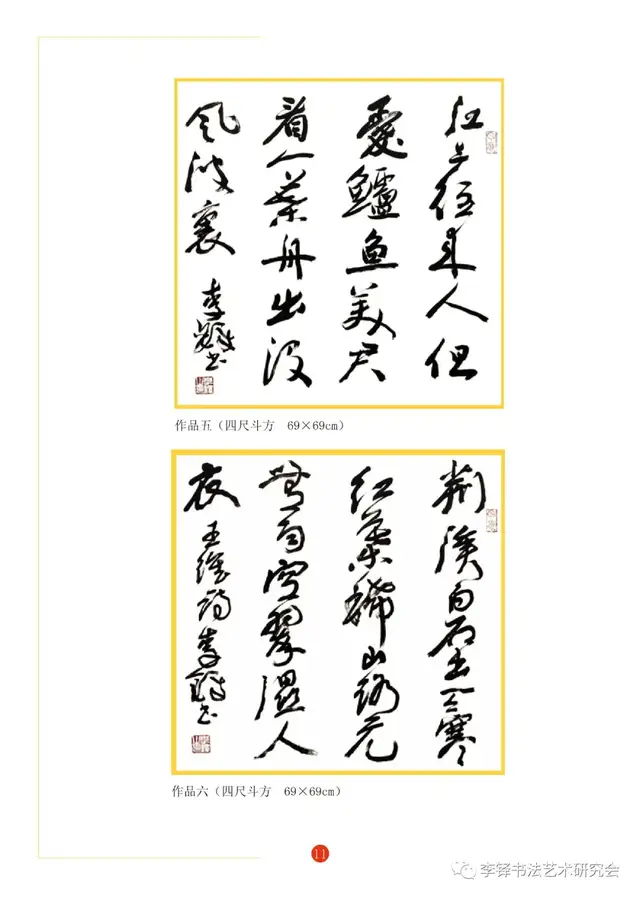 江上往来人但
愛鱸鱼美君
看一葉舟出没
风波裏
李鐸书
作品五（四尺斗方　69×69cm）
荆溪白石出天寒
红葉稀山路元
無雨空翠湿人
衣
王维诗李鐸书
作品六（四尺斗方　69×69cm）
11
李铎书法艺术研究会